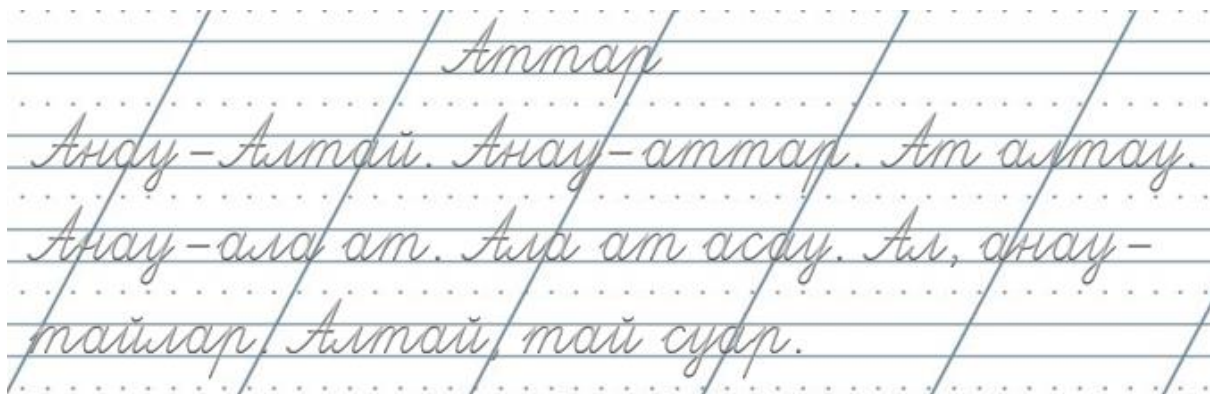 Аттар
Анау – Алтай. Анау – аттар. Ат алтау.
Анау – ала ат. Ала ат асау. Ал, анау –
тайлар. Алтай, тай суар.